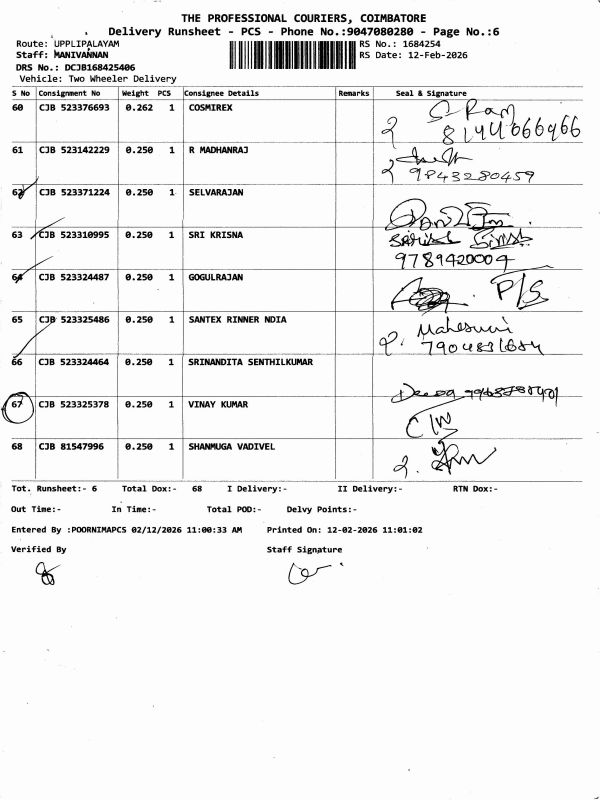 THE PROFESSIONAL COURIERS, COIMBATORE
Delivery Runsheet - PCS - Phone No.:9047080280 - Page No.:6
Route: UPPLIPALAYAM RS No.: 1684254
Staff: MANIVANNAN RS Date: 12-Feb-2026
DRS No.: DCJB168425406
Vehicle: Two Wheeler Delivery
S No Consignment No Weight PCS Consignee Details Remarks Seal & Signature
60 CJB 523376693 0.262 1 COSMIREX S Ram
8144066966
61 CJB 523142229 0.250 1 R MADHANRAJ
9843280459
62 CJB 523371224 0.250 1 SELVARAJAN
63 CJB 523310995 0.250 1 SRI KRISNA
9789420004
64 CJB 523324487 0.250 1 GOGULRAJAN P/S
65 CJB 523325486 0.250 1 SANTEX RINNER NDIA Maheswari
66 CJB 523324464 0.250 1 SRINANDITA SENTHILKUMAR
67 CJB 523325378 0.250 1 VINAY KUMAR
68 CJB 81547996 0.250 1 SHANMUGA VADIVEL
Tot. Runsheet:- 6 Total Dox:- 68 I Delivery:- II Delivery:- RTN Dox:-
Out Time:- In Time:- Total POD:- Delvy Points:-
Entered By :POORNIMAPCS 02/12/2026 11:00:33 AM Printed On: 12-02-2026 11:01:02
Verified By Staff Signature